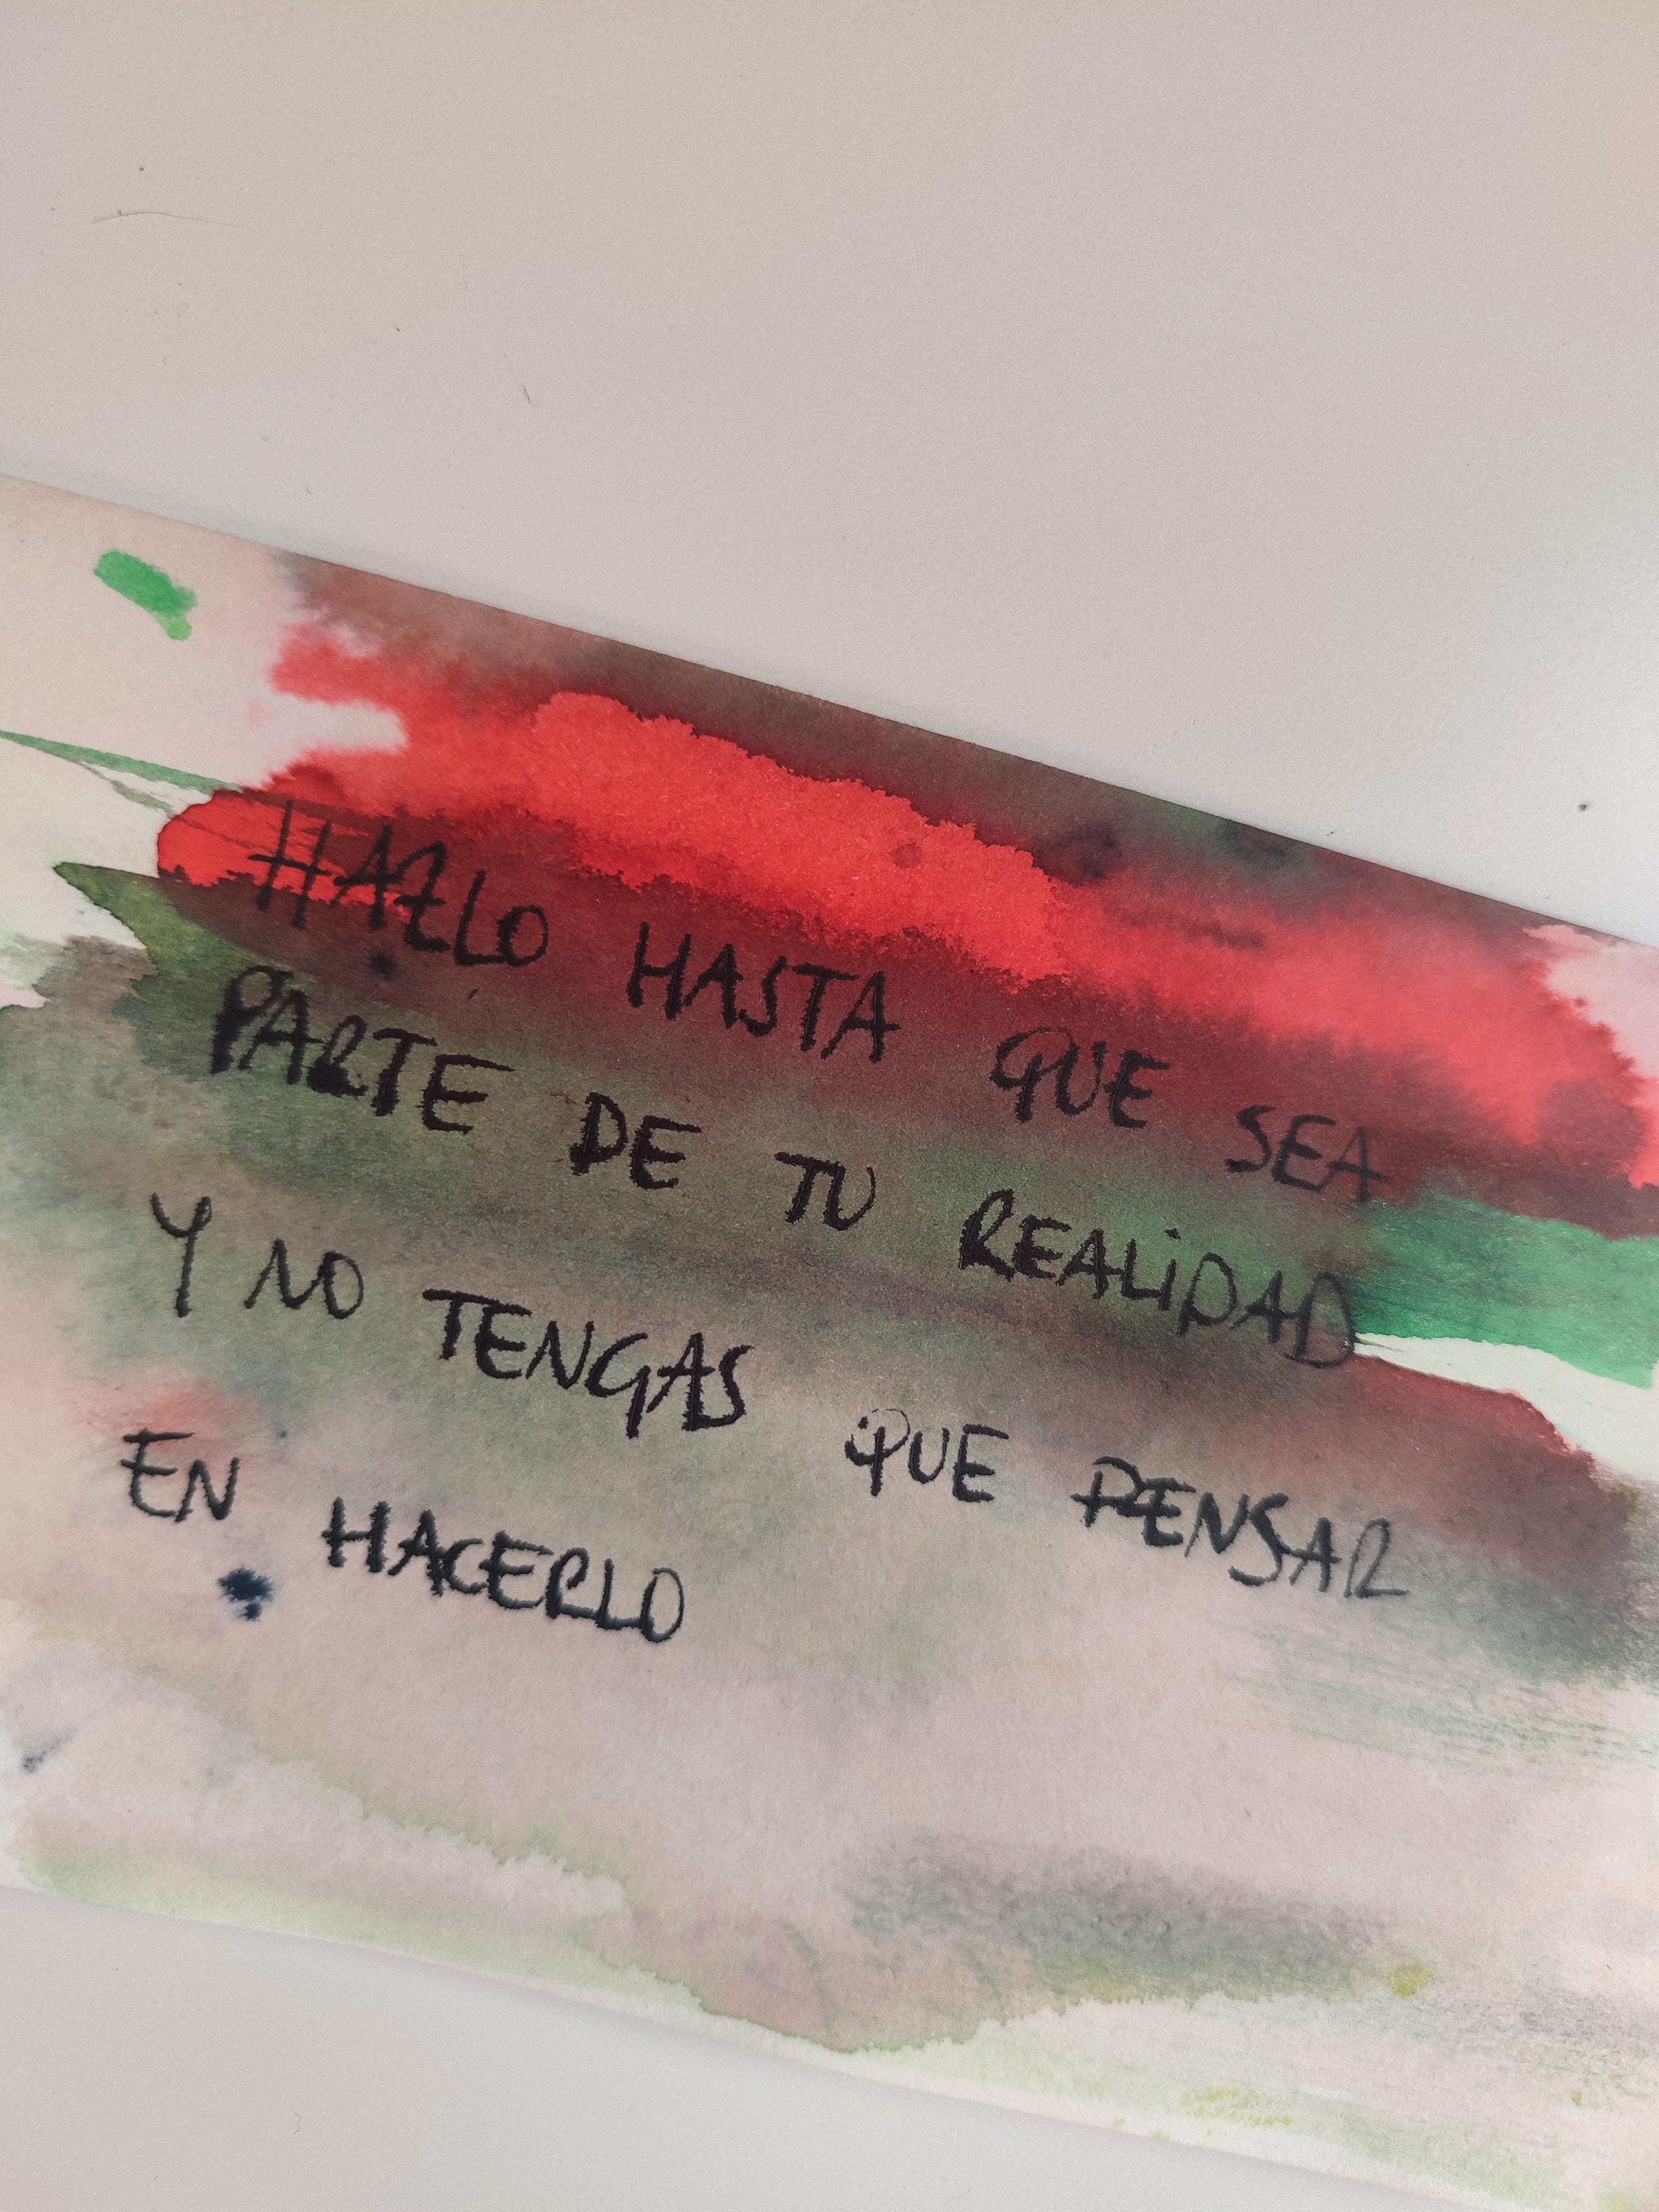 HAZLO HASTA QUE SEA
PARTE DE TU REALiDAD
Y NO TENGAS QUE PENSAR
EN HACERLO